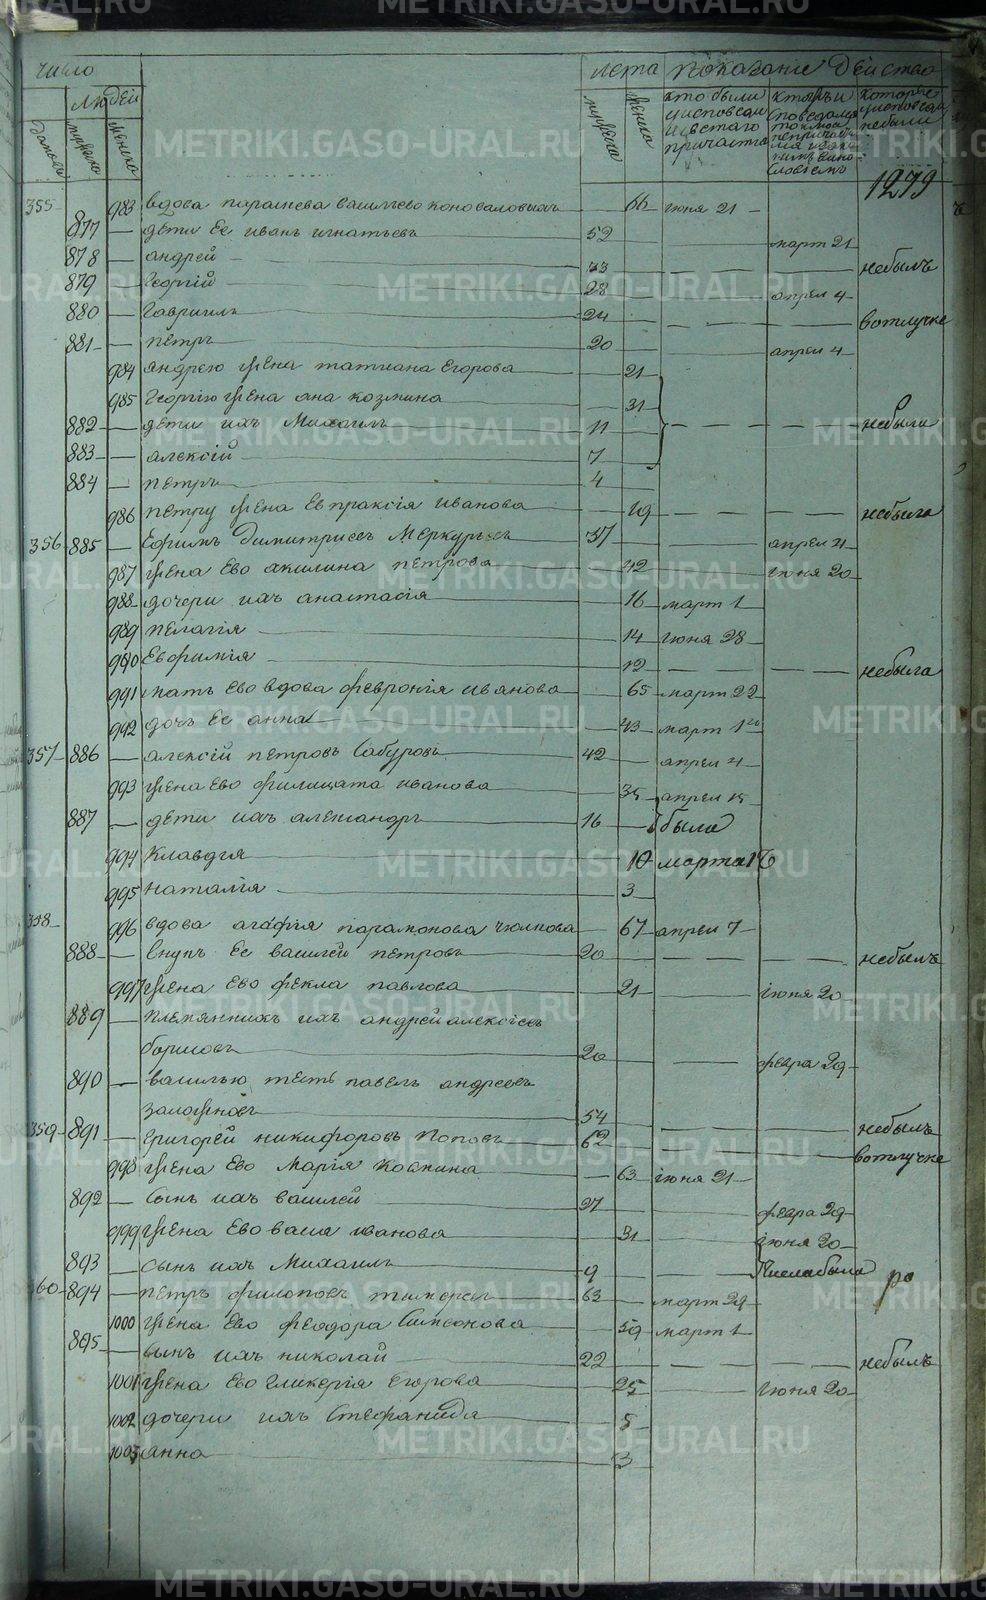 число лета показание действа
людей
дамовъ мужеска женска мужеска женска кто были у исповеди и свстаго причастия
которыя у исповеди небыли
1279
355 983 вдова параскева васильева коноваловыхъ 66 июня 21
877 дети ее иванъ игнатьевъ 52 март 21
878 андрей 33 небылъ
879 георгій 28 апрел 4
880 гавриилъ 24 вотлучке
881 петръ 20 апрел 4
984 андрею жена татиана егорова 21
985 георгію жена ана козмина 31
882 дети ихъ Михаилъ 11 небыли
883 алексій 7
884 петръ 4
986 петру жена Евпраксія иванова 19 небыла
356 885 Ефимъ Димитриевъ Меркурьевъ 37 апрел 4
987 жена Ево акилина петрова 42 июня 20
988 дочери ихъ анастасія 16 март 1
989 пелагія 14 июня 28
990 Евфимія 12 небыла
991 мать ево вдова феврония иванова 65 март 22
992 дочь ее анна 43 март 1
357 886 алексій петровъ Сабуровъ 42 апрел 4
993 жена ево филицата иванова 35 апрел 15
887 дети ихъ александръ 16 была
994 Клавдия 10 марта 16
995 наталія 3
358 996 вдова агафія парамонова 67 апрел 7
888 внукъ ее василей петровъ 20 небылъ
997 жена ево фекла павлова 21 июня 20
889 племянникъ ихъ андрей алексіевъ
борисовъ 20 февра 29
890 василью тесть павелъ андреевъ
54 небылъ
359 891 григорей никифоровъ Поповъ 62 вотлучке
998 жена Ево Марія Космина 63 июня 21
892 сынъ ихъ василей 27 февра 29
999 жена Ево васа иванова 31 июня 20
893 сынъ ихъ Михаилъ 9
360 894 петръ филиповъ 63 март 29
1000 жена Ево феодора Симеонова 59 март 1
895 сынъ ихъ николай 22 небылъ
1001 жена Ево Гликерія Егорова 25 июня 20
1002 дочери ихъ Стефанида 5
1003 анна 3
METRIKI.GASO-URAL.RU